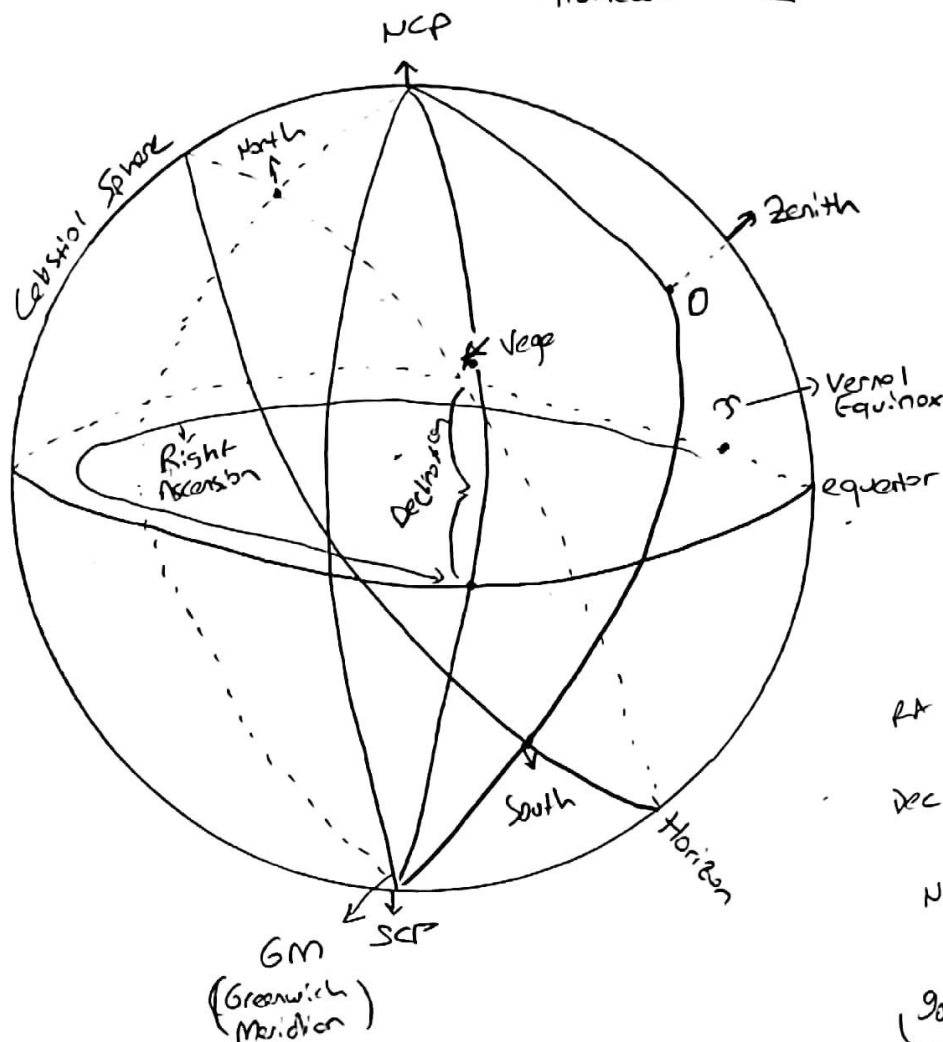 NCP
Celestial Sphere
North
Zenith
O
Vega
♈
Vernal
Equinox
Right
Ascension
Declination
equator
RA
DEC
South
Horizon
N
GM
SCP
(Greenwich
Meridian)